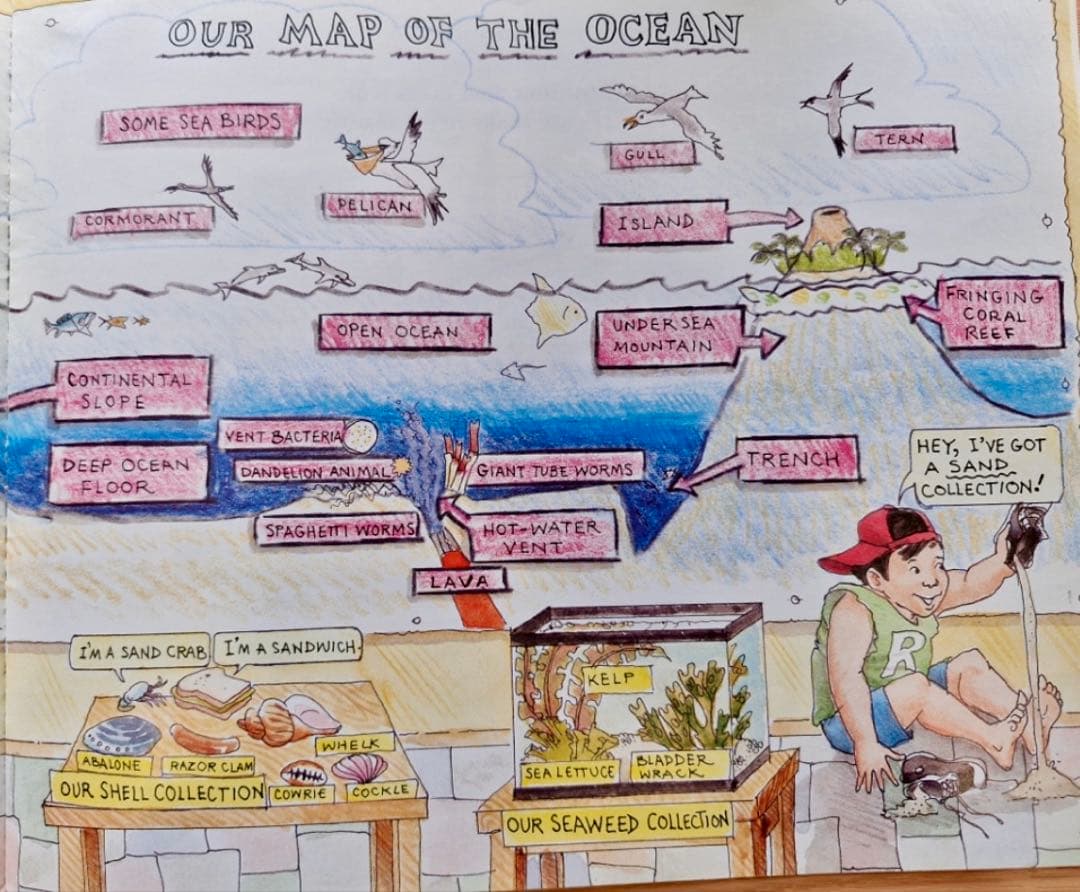 OUR MAP OF THE OCEAN
SOME SEA BIRDS
CORMORANT
PELICAN
GULL
TERN
ISLAND
FRINGING
CORAL
REEF
OPEN OCEAN
UNDERSEA
MOUNTAIN
CONTINENTAL
SLOPE
DEEP OCEAN
FLOOR
VENT BACTERIA
DANDELION ANIMAL
SPAGHETTI WORMS
GIANT TUBE WORMS
HOT-WATER
VENT
LAVA
TRENCH
HEY, I'VE GOT
A SAND
COLLECTION!
I'M A SAND CRAB
I'M A SANDWICH.
ABALONE
RAZOR CLAM
WHELK
COWRIE
COCKLE
OUR SHELL COLLECTION
KELP
SEA LETTUCE
BLADDER
WRACK
OUR SEAWEED COLLECTION
R